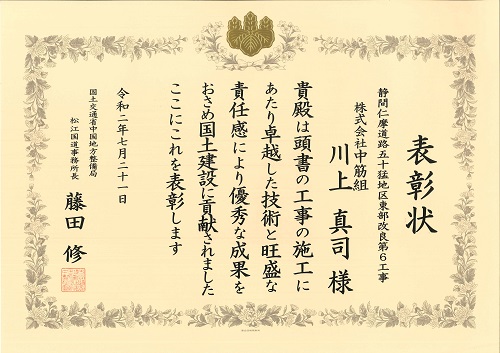 表彰状
静間仁摩道路五十猛地区東部改良第6工事
株式会社中筋組
川上 真司 様
貴殿は頭書の工事の施工に
あたり卓越した技術と旺盛な
責任感により優秀な成果を
おさめ国土建設に貢献されました
ここにこれを表彰します
令和二年七月二十一日
国土交通省中国地方整備局
松江国道事務所長
藤田 修